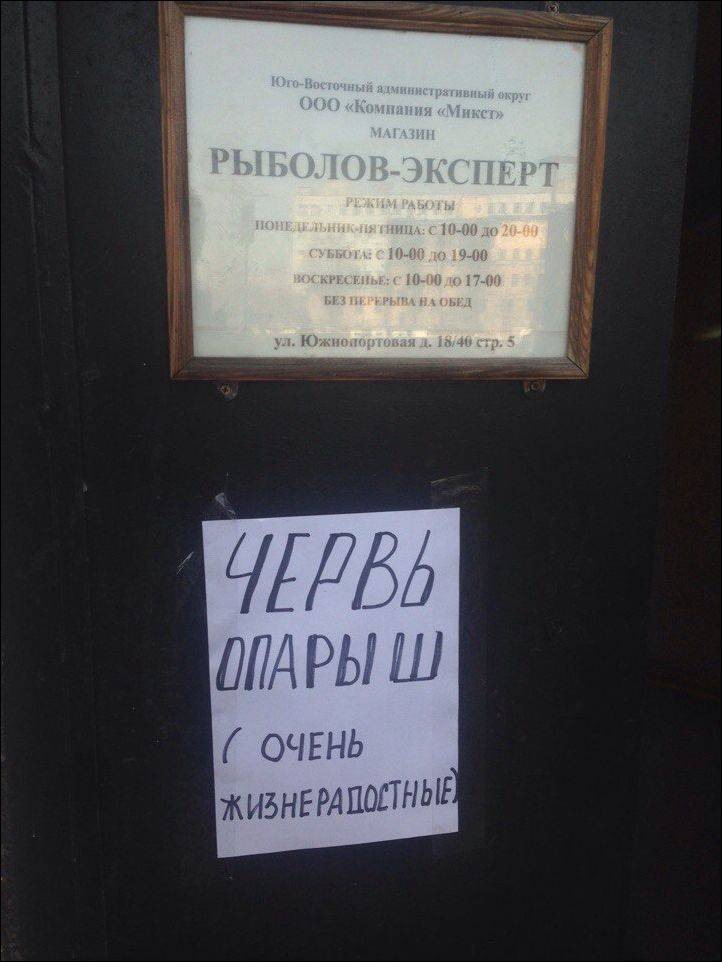 Юго-Восточный административный округ
ООО «Компания «Микст»
МАГАЗИН
РЫБОЛОВ-ЭКСПЕРТ
РЕЖИМ РАБОТЫ
ПОНЕДЕЛЬНИК-ПЯТНИЦА: С 10-00 ДО 20-00
СУББОТА: С 10-00 ДО 19-00
ВОСКРЕСЕНЬЕ: С 10-00 ДО 17-00
БЕЗ ПЕРЕРЫВА НА ОБЕД
ул. Южнопортовая д. 18/40 стр. 5
ЧЕРВЬ
ОПАРЫШ
( ОЧЕНЬ
ЖИЗНЕРАДОСТНЫЕ)